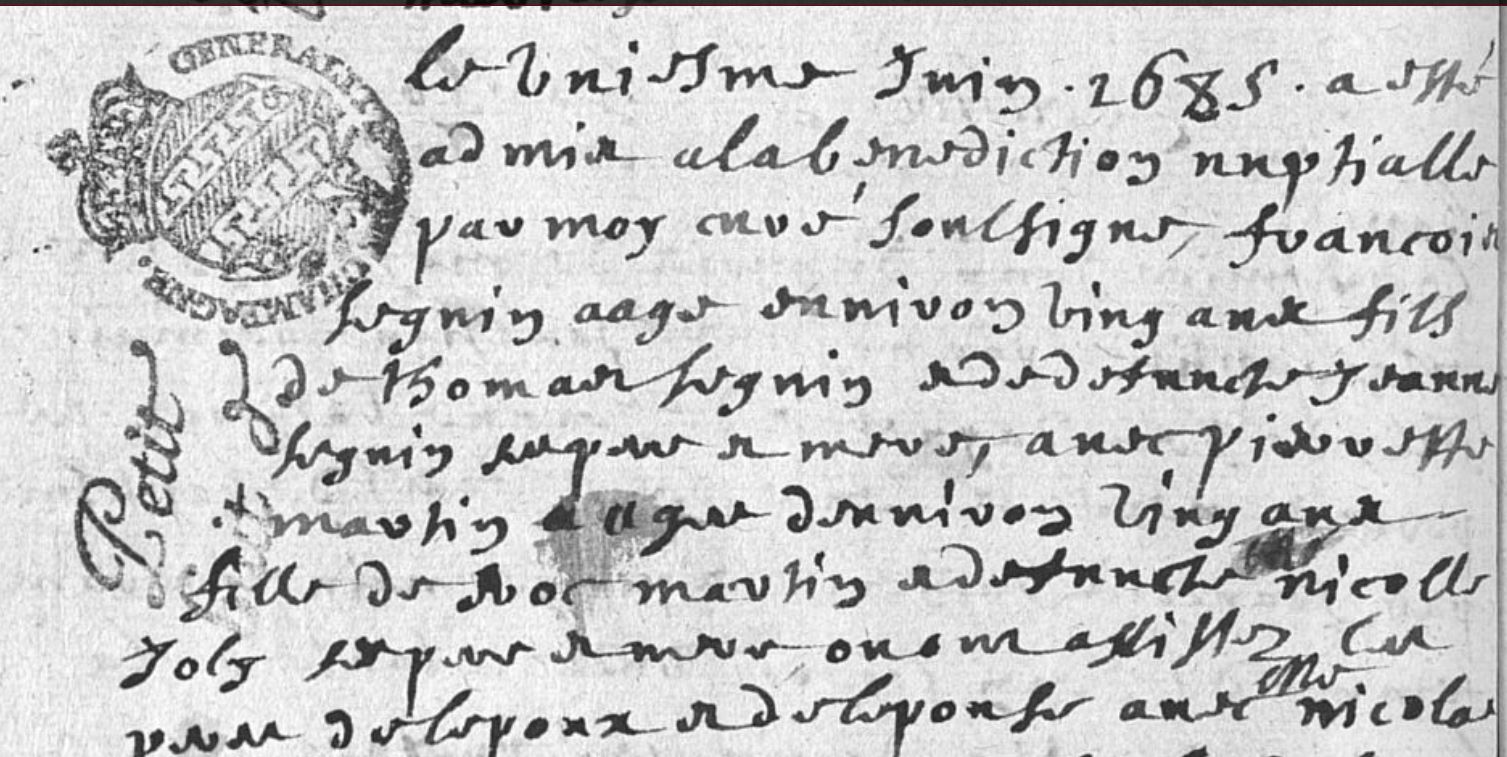 GENERALITE
DE CHAMPAGNE
Petit
le vniesme Juin . 1685 . a esté
admis a la benediction nuptialle
par moy curé soulsigne, francois
seguin aage enniron ving ans fils
de thomas seguin et de defuncte Jeanne
seguin ses pere et mere, auec pierrette
martin aagee denniron ving ans
fille de roc martin et defuncte nicolle
Joly ses pere et mere ou ont assistez les
peres de lepoux et de lepouse auec nicolas